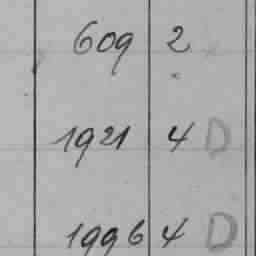 609 2
1921 4 D
1996 4 D